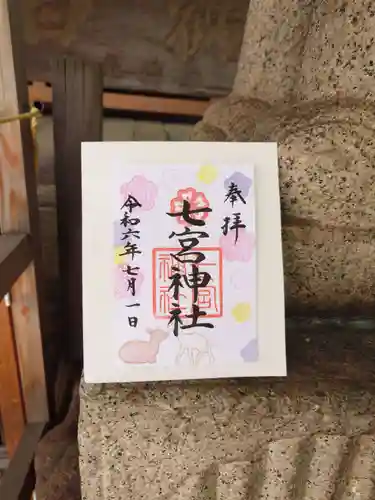 奉拝
七宮神社
令和六年七月一日